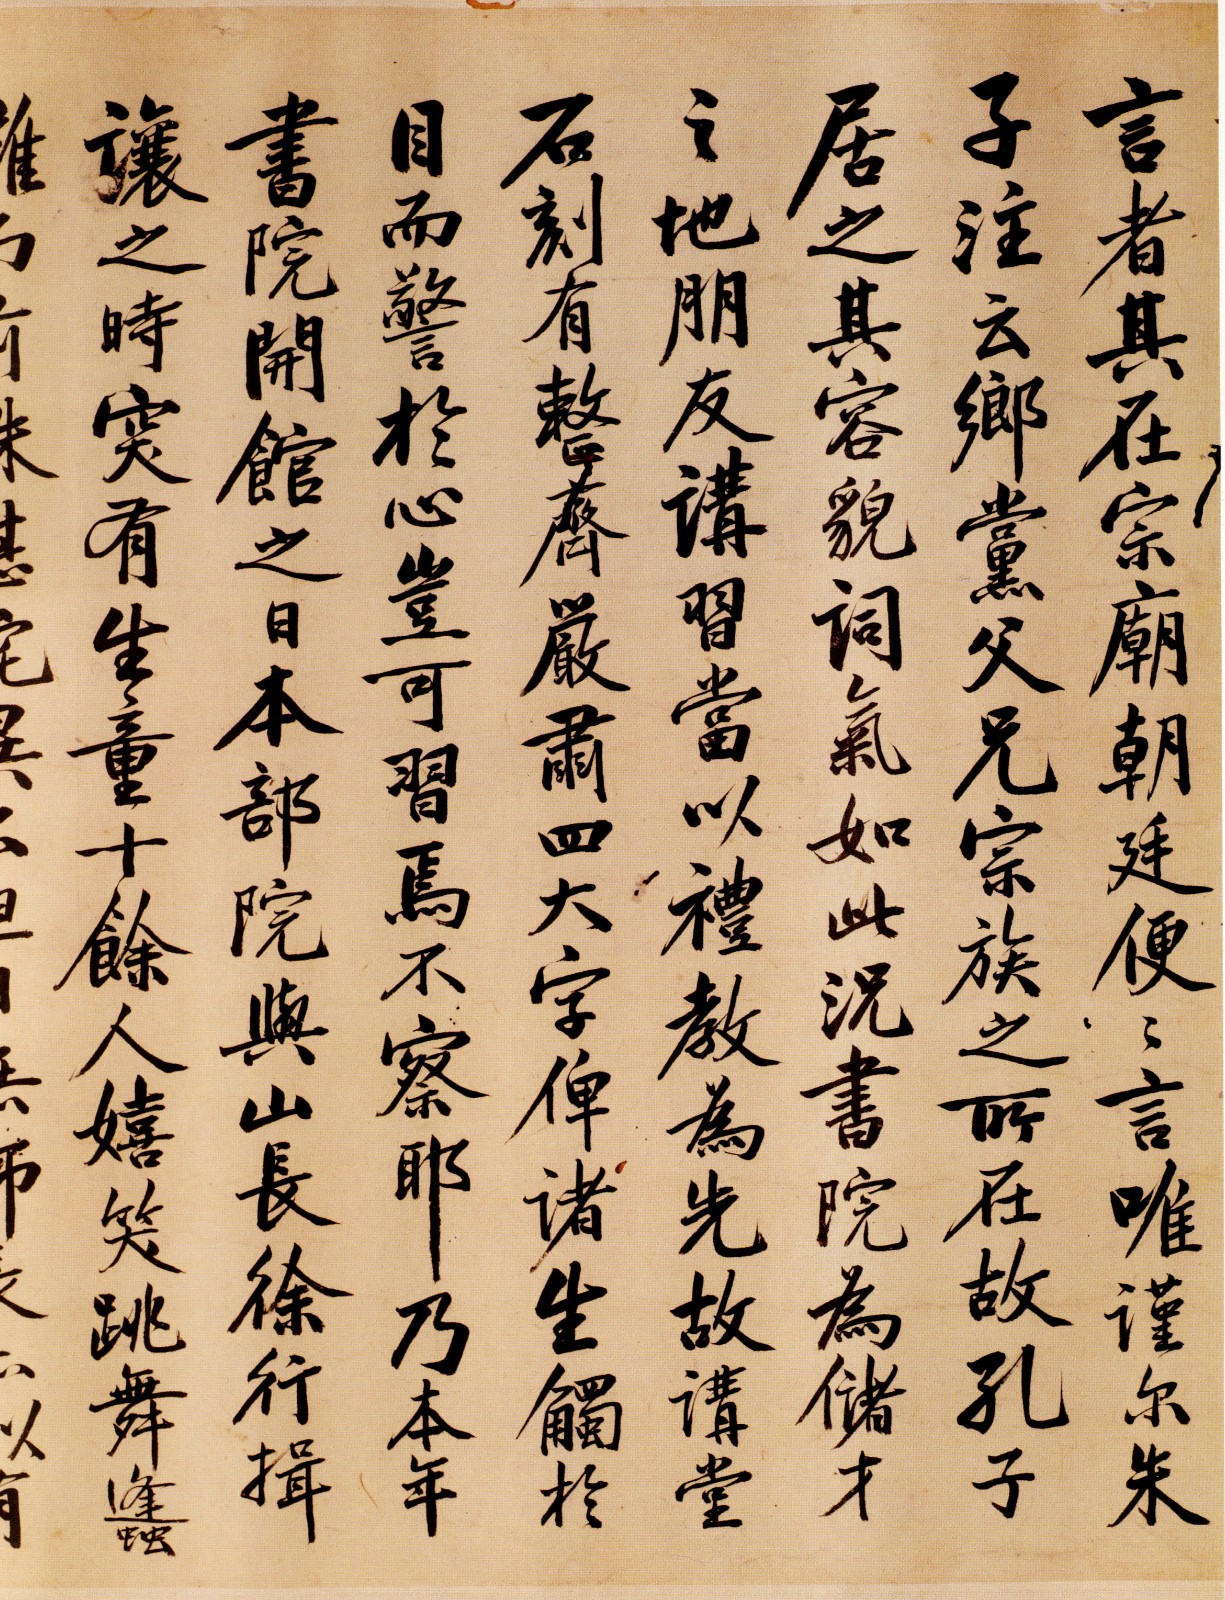 言者其在宗廟朝廷便〻言唯謹尔朱
子注云鄉黨父兄宗族之所在故孔子
居之其容貌詞氣如此況書院為儲才
之地朋友講習當以禮教為先故講堂
石刻有整齊嚴肅四大字俾諸生觸於
目而警於心豈可習焉不察耶乃本年
書院開館之日本部院與山長徐行揖
讓之時突有生童十餘人嬉笑跳舞蜂